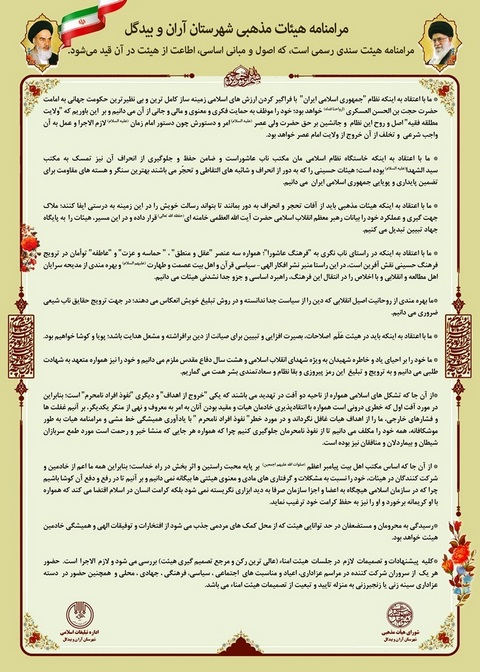 مرامنامه هیئات مذهبی شهرستان آران و بیدگل
مرامنامه هیئت سندی رسمی است، که اصول و مبانی اساسی، اطاعت از هیئت در آن قید می‌شود.
* ما با اعتقاد به اینکه نظام "جمهوری اسلامی ایران" با فراگیر کردن ارزش های اسلامی زمینه ساز کامل ترین و بی نظیرترین حکومت جهانی به امامت
حضرت حجت بن الحسن العسکری خواهد بود؛ خود را موظف به حمایت فکری و معنوی و مالی و جانی از آن می‌دانیم و بر این باوریم که "ولایت
مطلقه فقیه" اصل و روح این نظام و جانشین بر حق حضرت ولی عصر امر و دستورش چون دستور امام زمان لازم الاجرا و عمل به آن
واجب شرعی و تخلف از آن خروج از ولایت امام عصر خواهد بود.
* ما با اعتقاد به اینکه خاستگاه نظام اسلامی مان مکتب ناب عاشوراست و ضامن حفظ و جلوگیری از انحراف آن نیز تمسک به مکتب
سید الشهدا بوده است؛ هیئات حسینی را که به دور از انحراف و شائبه های التقاطی و تحجّر می باشند بهترین سنگر و هسته های مقاومت برای
تضمین پایداری و پویایی جمهوری اسلامی ایران می دانیم.
* ما با اعتقاد به اینکه هیئات مذهبی باید از آفات تحجر و انحراف به دور بمانند تا بتواند رسالت خویش را در این زمینه به درستی ایفا کنند؛ ملاک
جهت گیری و عملکرد خود را بیانات رهبر معظم انقلاب اسلامی حضرت آیت الله العظمی خامنه ای قرار داده و در این مسیر، هیئات را به پایگاه
جهاد تبیین تبدیل می کنیم.
* ما با اعتقاد به اینکه در راستای ناب نگری به "فرهنگ عاشورا"؛ همواره سه عنصر "عقل و منطق" ، "حماسه و عزت" و "عاطفه" توأمان در ترویج
فرهنگ حسینی نقش آفرین است، در این راستا منبر نشر افکار الهی - سیاسی قرآن و اهل بیت عصمت و طهارت و بهره مندی از مدیحه سرایان
اهل مطالعه و انقلابی و با اخلاص را در انتقال این فرهنگ، راهبرد اساسی و جزو جدا نشدنی هیئات می دانیم.
*ما بهره مندی از روحانیت اصیل انقلابی که دین را از سیاست جدا ندانسته و در روش تبلیغ خویش انعکاس می دهند؛ در جهت ترویج حقایق ناب شیعی
ضروری می دانیم.
* ما با اعتقاد به اینکه باید در هیئت عَلَم اصلاحات، بصیرت افزایی و تبیین برای صیانت از دین برافراشته و مشعل هدایت باشد؛ پویا و کوشا خواهیم بود.
* ما خود را بر احیای یاد و خاطره شهیدان به ویژه شهدای انقلاب اسلامی و هشت سال دفاع مقدس ملزم می دانیم و خود را نیز همواره متعهد به شهادت
طلبی می دانیم و به ترویج و تبلیغ این رمز پیروزی و بقا نظام و سعادتمندی بشر همت می گماریم.
*از آن جا که تشکل های اسلامی همواره از ناحیه دو آفت در تهدید می باشند که یکی "خروج از اهداف" و دیگری "نفوذ افراد نامحرم" است؛ بنابراین
در مورد آفت اول که خطری درونی است همواره با انتقادپذیری خادمان هیات و مفید بودن آنان به امر به معروف و نهی از منکر یکدیگر، بر آنیم غفلت ها
و فشارهای خارجی، ما را از اهداف هیات غافل نگرداند و در مورد خطر "نفوذ افراد نامحرم" با یادآوری همیشگی خط مشی و مرامنامه هیات به طور
موشکافانه، همه خود را مکلف می دانیم تا از نفوذ نامحرمان جلوگیری کنیم چرا که همواره هر جایی که منشا خیر و رحمت است مورد طمع سربازان
شیطان و بیماردلان و منافقان نیز بوده است.
* از آن جا که اساس مکتب اهل بیت پیامبر اعظم بر پایه محبت راستین و اثر بخش در راه خداست؛ بنابراین همه ما اعم از خادمین و
شرکت کنندگان در هیئات، خود را نسبت به مشکلات و گرفتاری های مادی و معنوی هیئتی ها بیگانه نمی دانیم و بر آنیم تا در رفع و دفع آن کوشا باشیم
چرا که در سازمان اسلامی هیچگاه به اعضا و اجزا سازمان صرفا به دید ابزاری نگریسته نمی شود بلکه کرامت انسان در اسلام اقتضا می کند که همواره
با او کریمانه برخورد و او را نیز به حفظ کرامت خود ترغیب نماید.
*رسیدگی به محرومان و مستضعفان در حد توانایی هیئت که از محل کمک های مردمی جذب می شود از افتخارات و توفیقات الهی و همیشگی خادمین
هیئت خواهد بود.
*کلیه پیشنهادات و تصمیمات لازم در جلسات هیئت امناء (عالی ترین رکن و مرجع تصمیم گیری هیئت) بررسی می شود و لازم الاجرا است. حضور
هر یک از سروران شرکت کننده در مراسم عزاداری، اعیاد و مناسبت های اجتماعی ، سیاسی، فرهنگی ، جهادی ، محلی و همچنین حضور در دسته
عزاداری سینه زنی یا زنجیرزنی به منزله تایید و تبعیت از تصمیمات هیئت امناء می باشد.
شورای هیأت مذهبی
شهرستان آران و بیدگل
اداره تبلیغات اسلامی
شهرستان آران و بیدگل